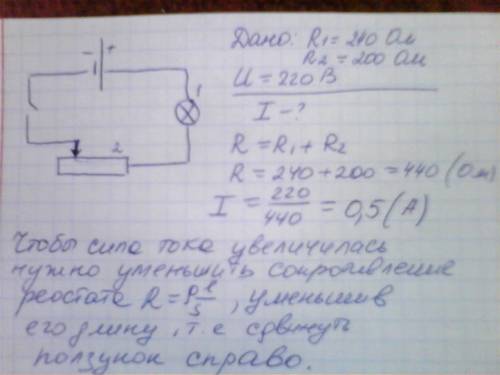 Дано: R1 = 240 Ом
R2 = 200 Ом
U = 220 В
I - ?
R = R1 + R2
R = 240 + 200 = 440 (Ом)
I = 220/440 = 0,5 (А)
- +
1
2
Чтобы сила тока увеличилась
нужно уменьшить сопротивление
реостата R = ρ l/s, уменьшив
его длину, т.е сдвинуть
ползунок справо.